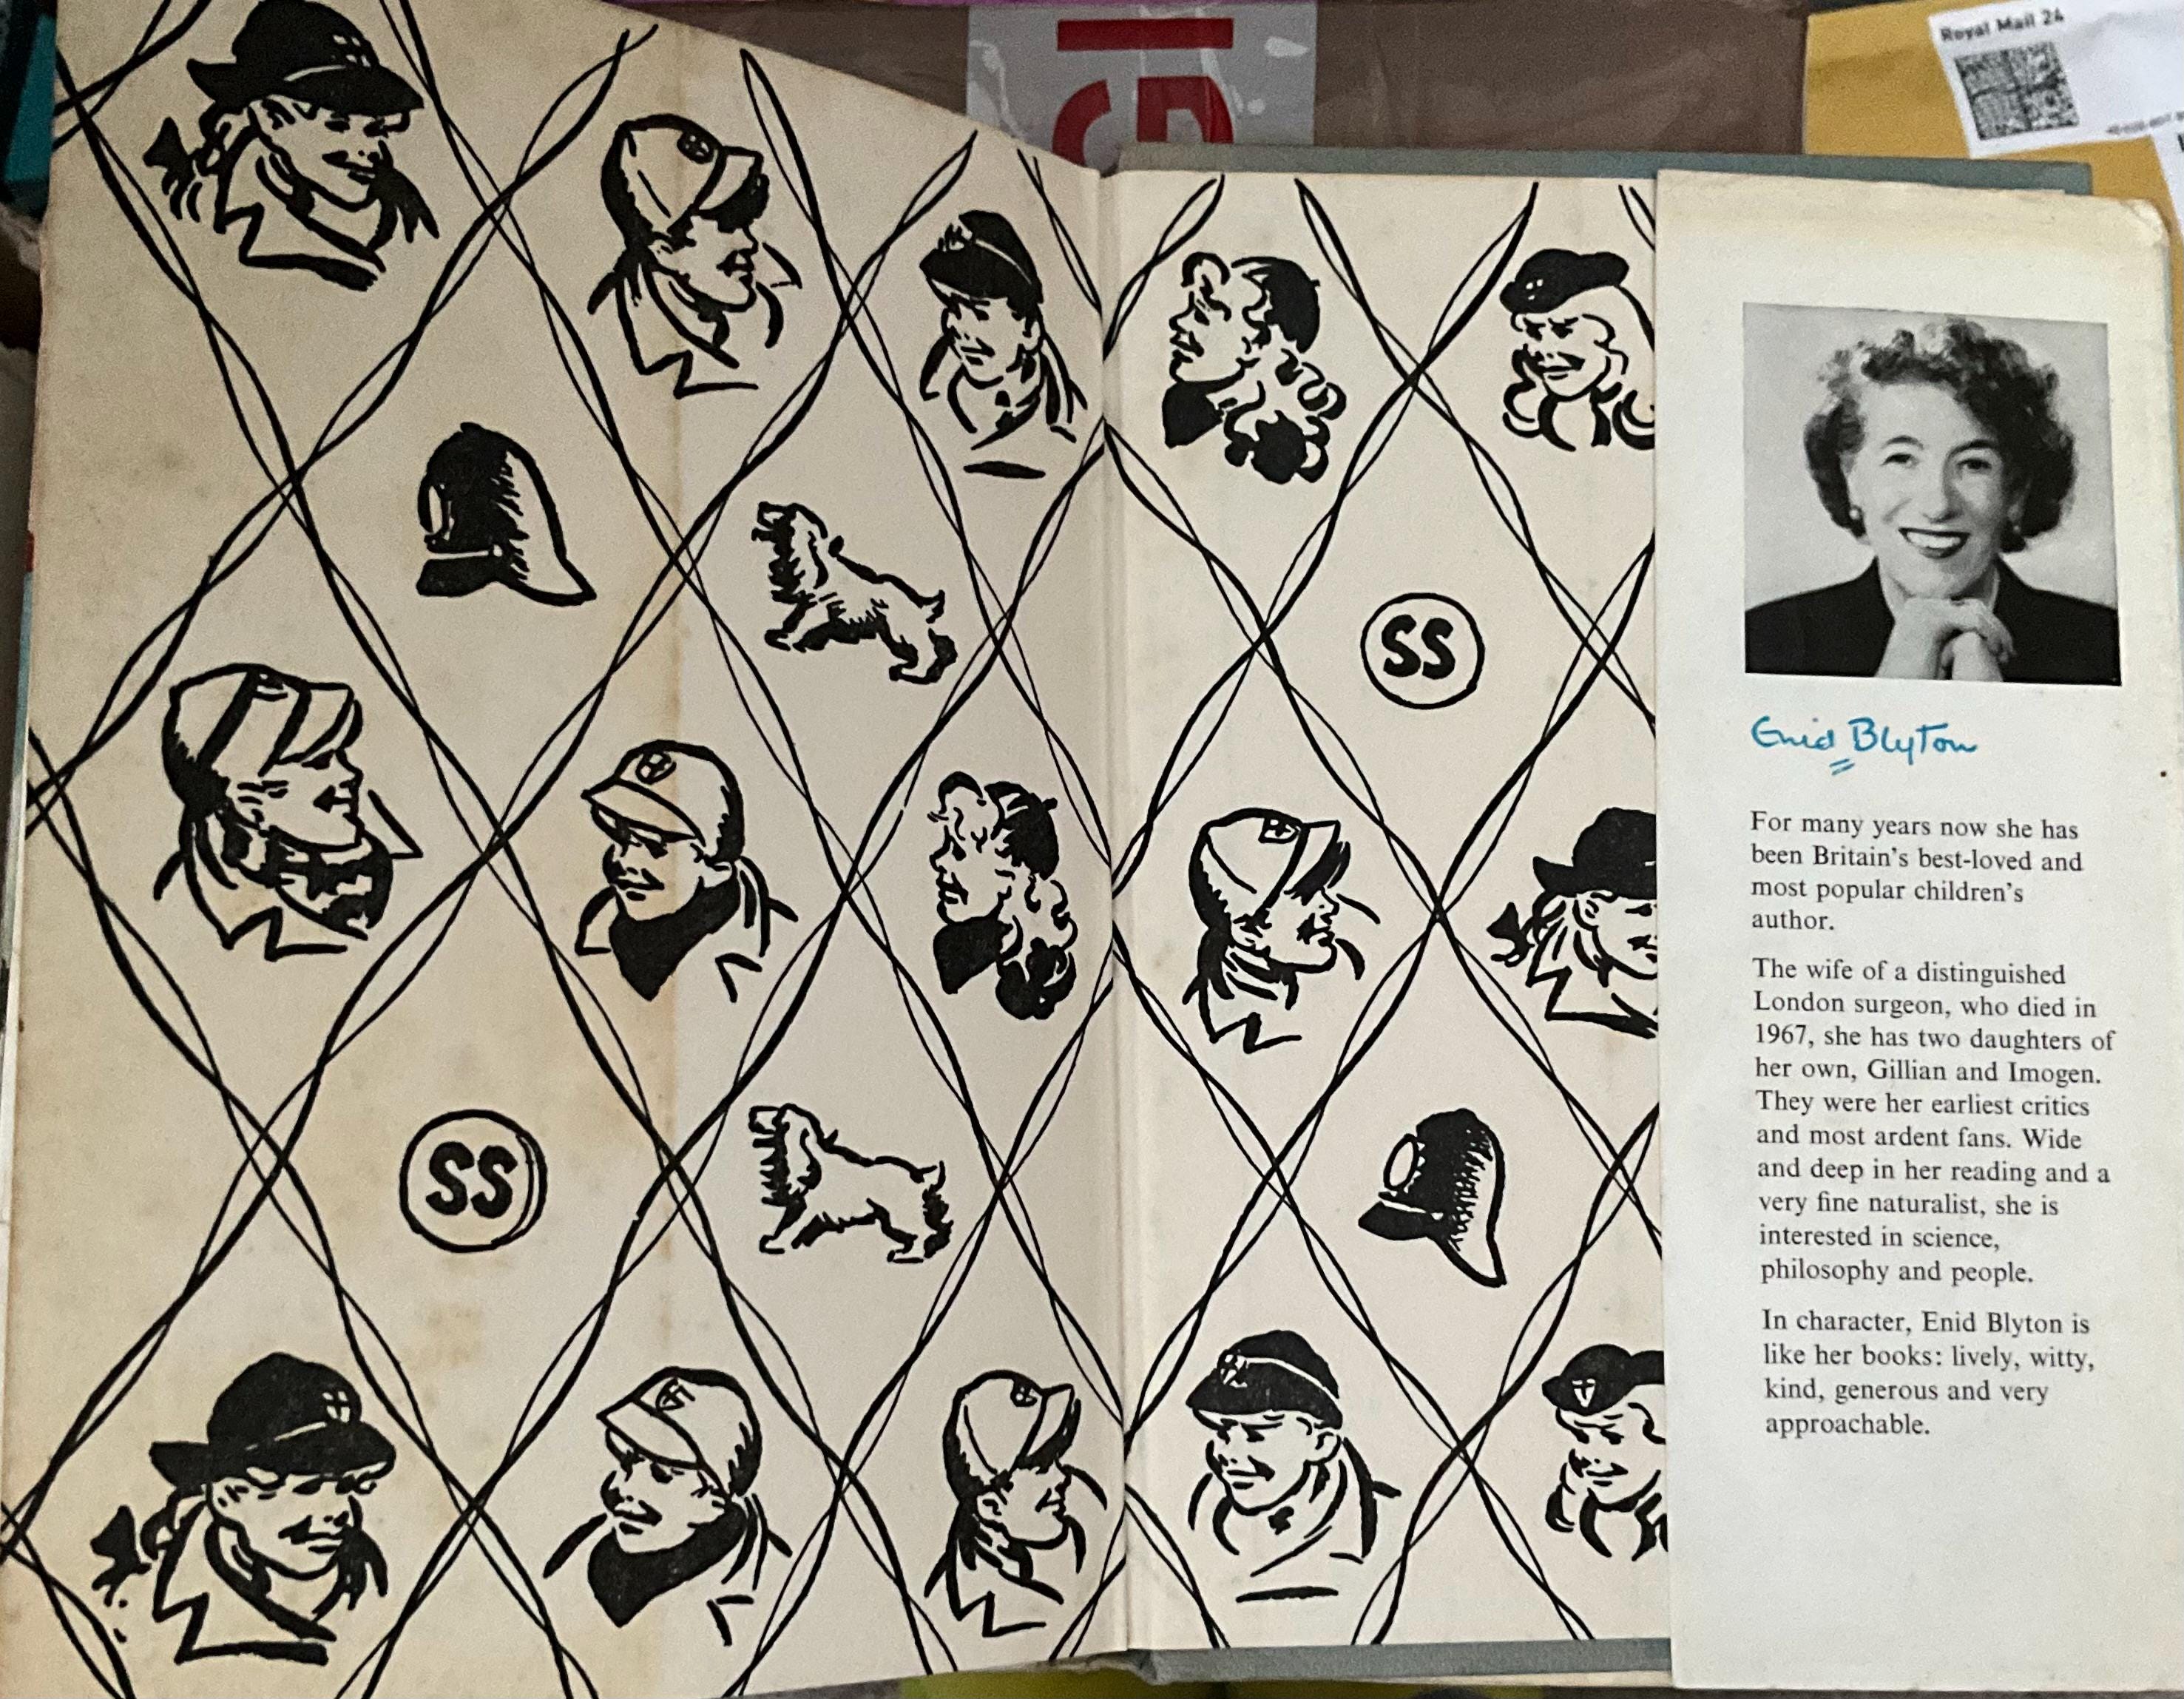 Royal Mail 24
SS
SS
Enid Blyton
For many years now she has
been Britain's best-loved and
most popular children's
author.
The wife of a distinguished
London surgeon, who died in
1967, she has two daughters of
her own, Gillian and Imogen.
They were her earliest critics
and most ardent fans. Wide
and deep in her reading and a
very fine naturalist, she is
interested in science,
philosophy and people.
In character, Enid Blyton is
like her books: lively, witty,
kind, generous and very
approachable.